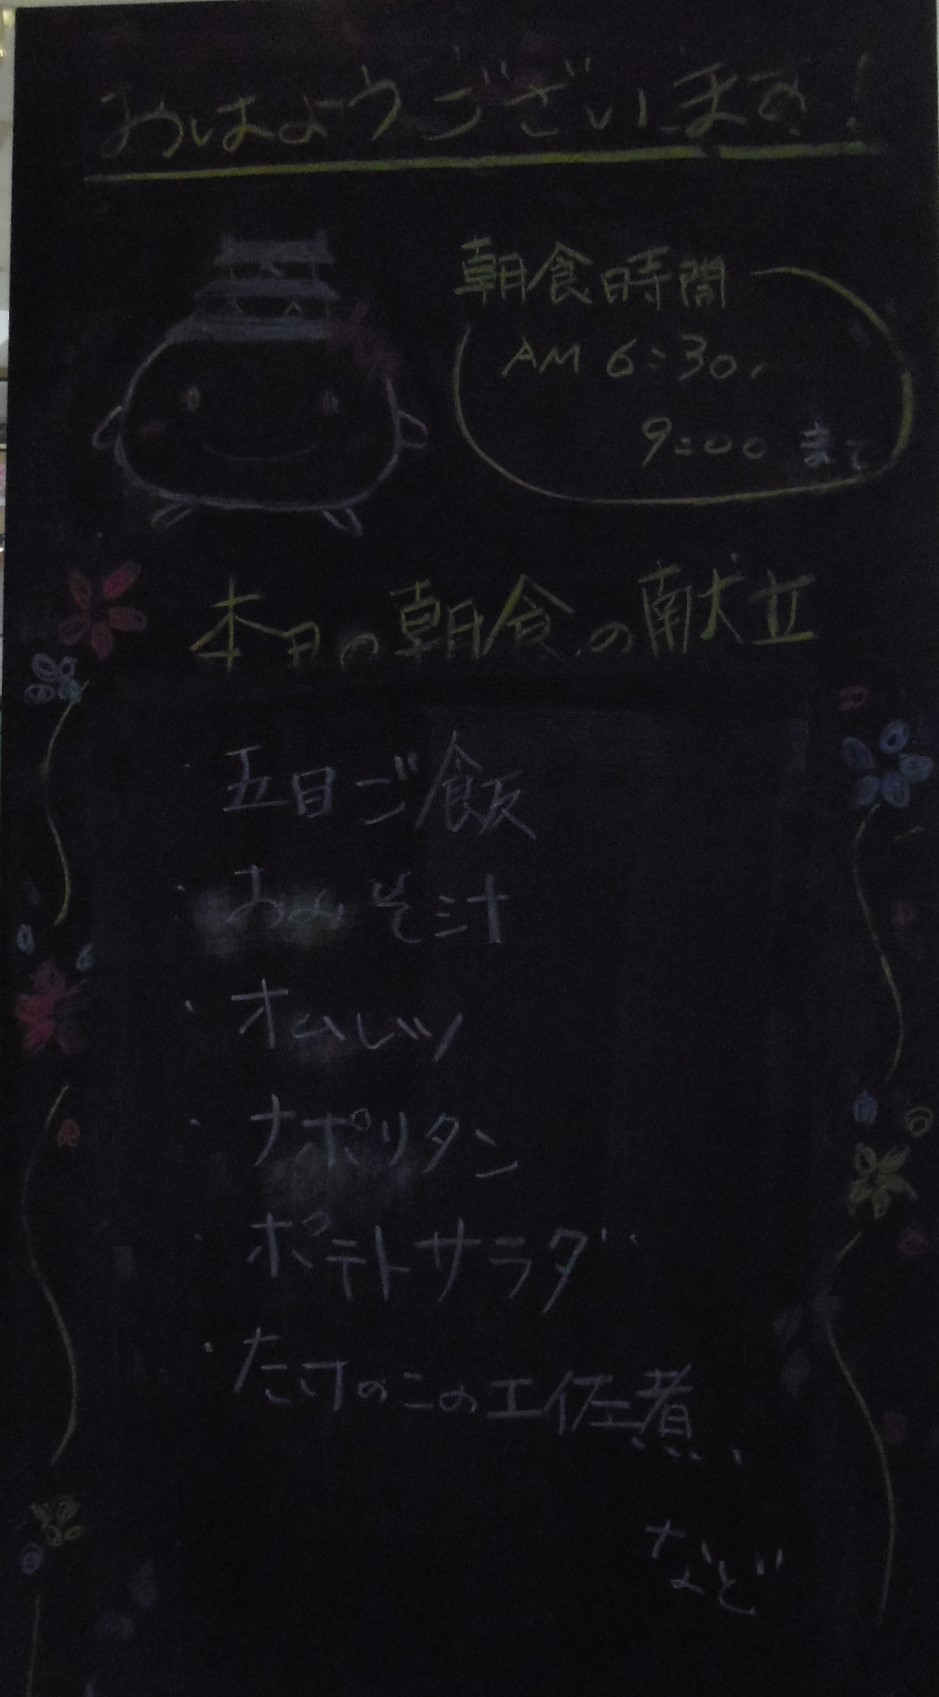 おはようございます!
朝食時間
AM 6:30~
9:00 まで
本日の朝食の献立
・五目ご飯
・おみそ汁
・オムレツ
・ナポリタン
・ポテトサラダ
・たけのこの土佐煮
など